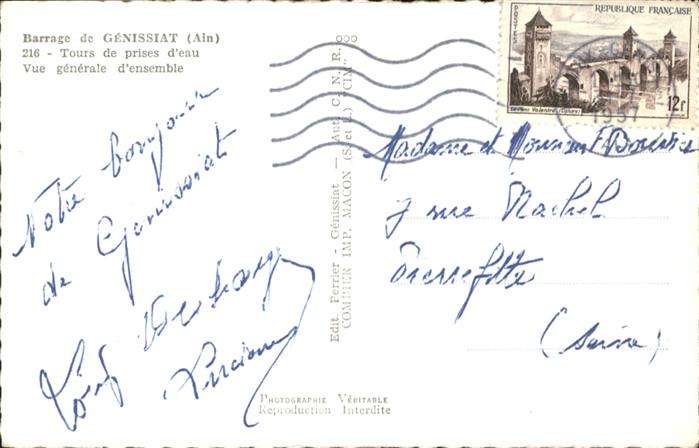 Barrage de GÉNISSIAT (Ain)
216 - Tours de prises d'eau
Vue générale d'ensemble
Notre bonjour
de Génissiat
Lucienne
Edit. Perrier - Génissiat - Aut. C. N. R.
COMBIER IMP. MACON (S.-et-L.) "CIM"
PHOTOGRAPHIE VÉRITABLE
Reproduction Interdite
POSTES
RÉPUBLIQUE FRANÇAISE
Le Pont Valentré (Cahors)
12f
1957
Madame et Monsieur
7 rue Rachel
Pierrefitte
(Seine)